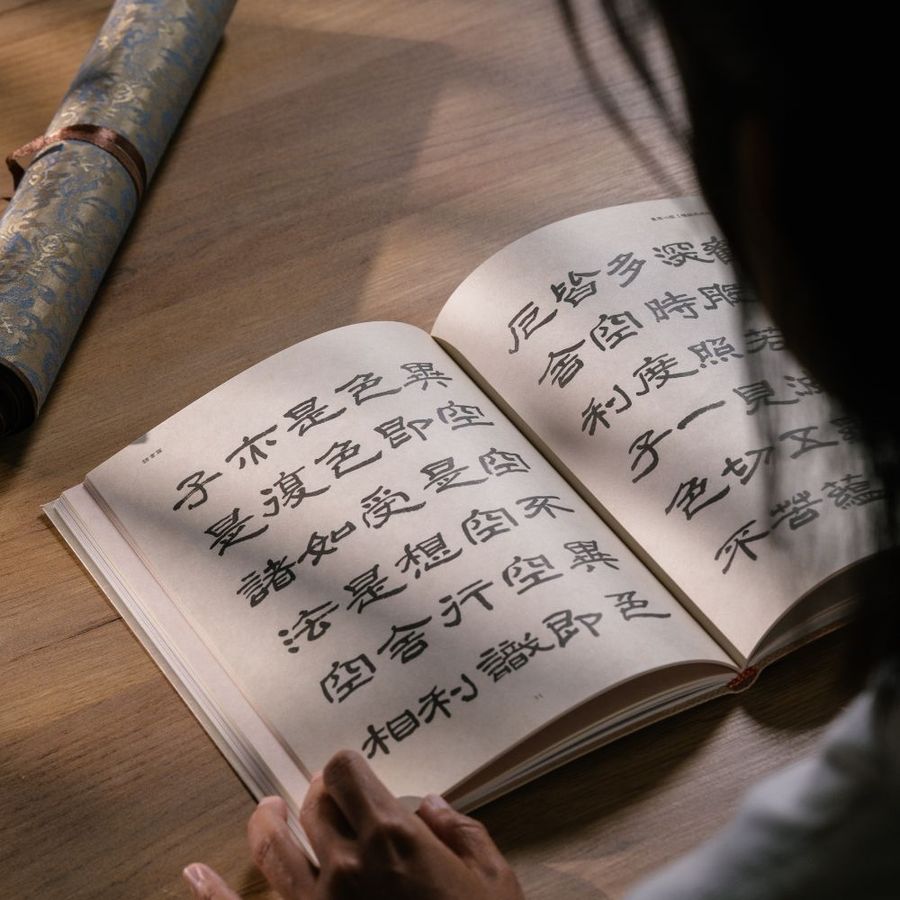 深般若波羅
多時照見五蘊
皆空度一切苦
厄舍利子色不
異空空不異色
色即是空空即
是色受想行識
亦復如是舍利
子是諸法空相